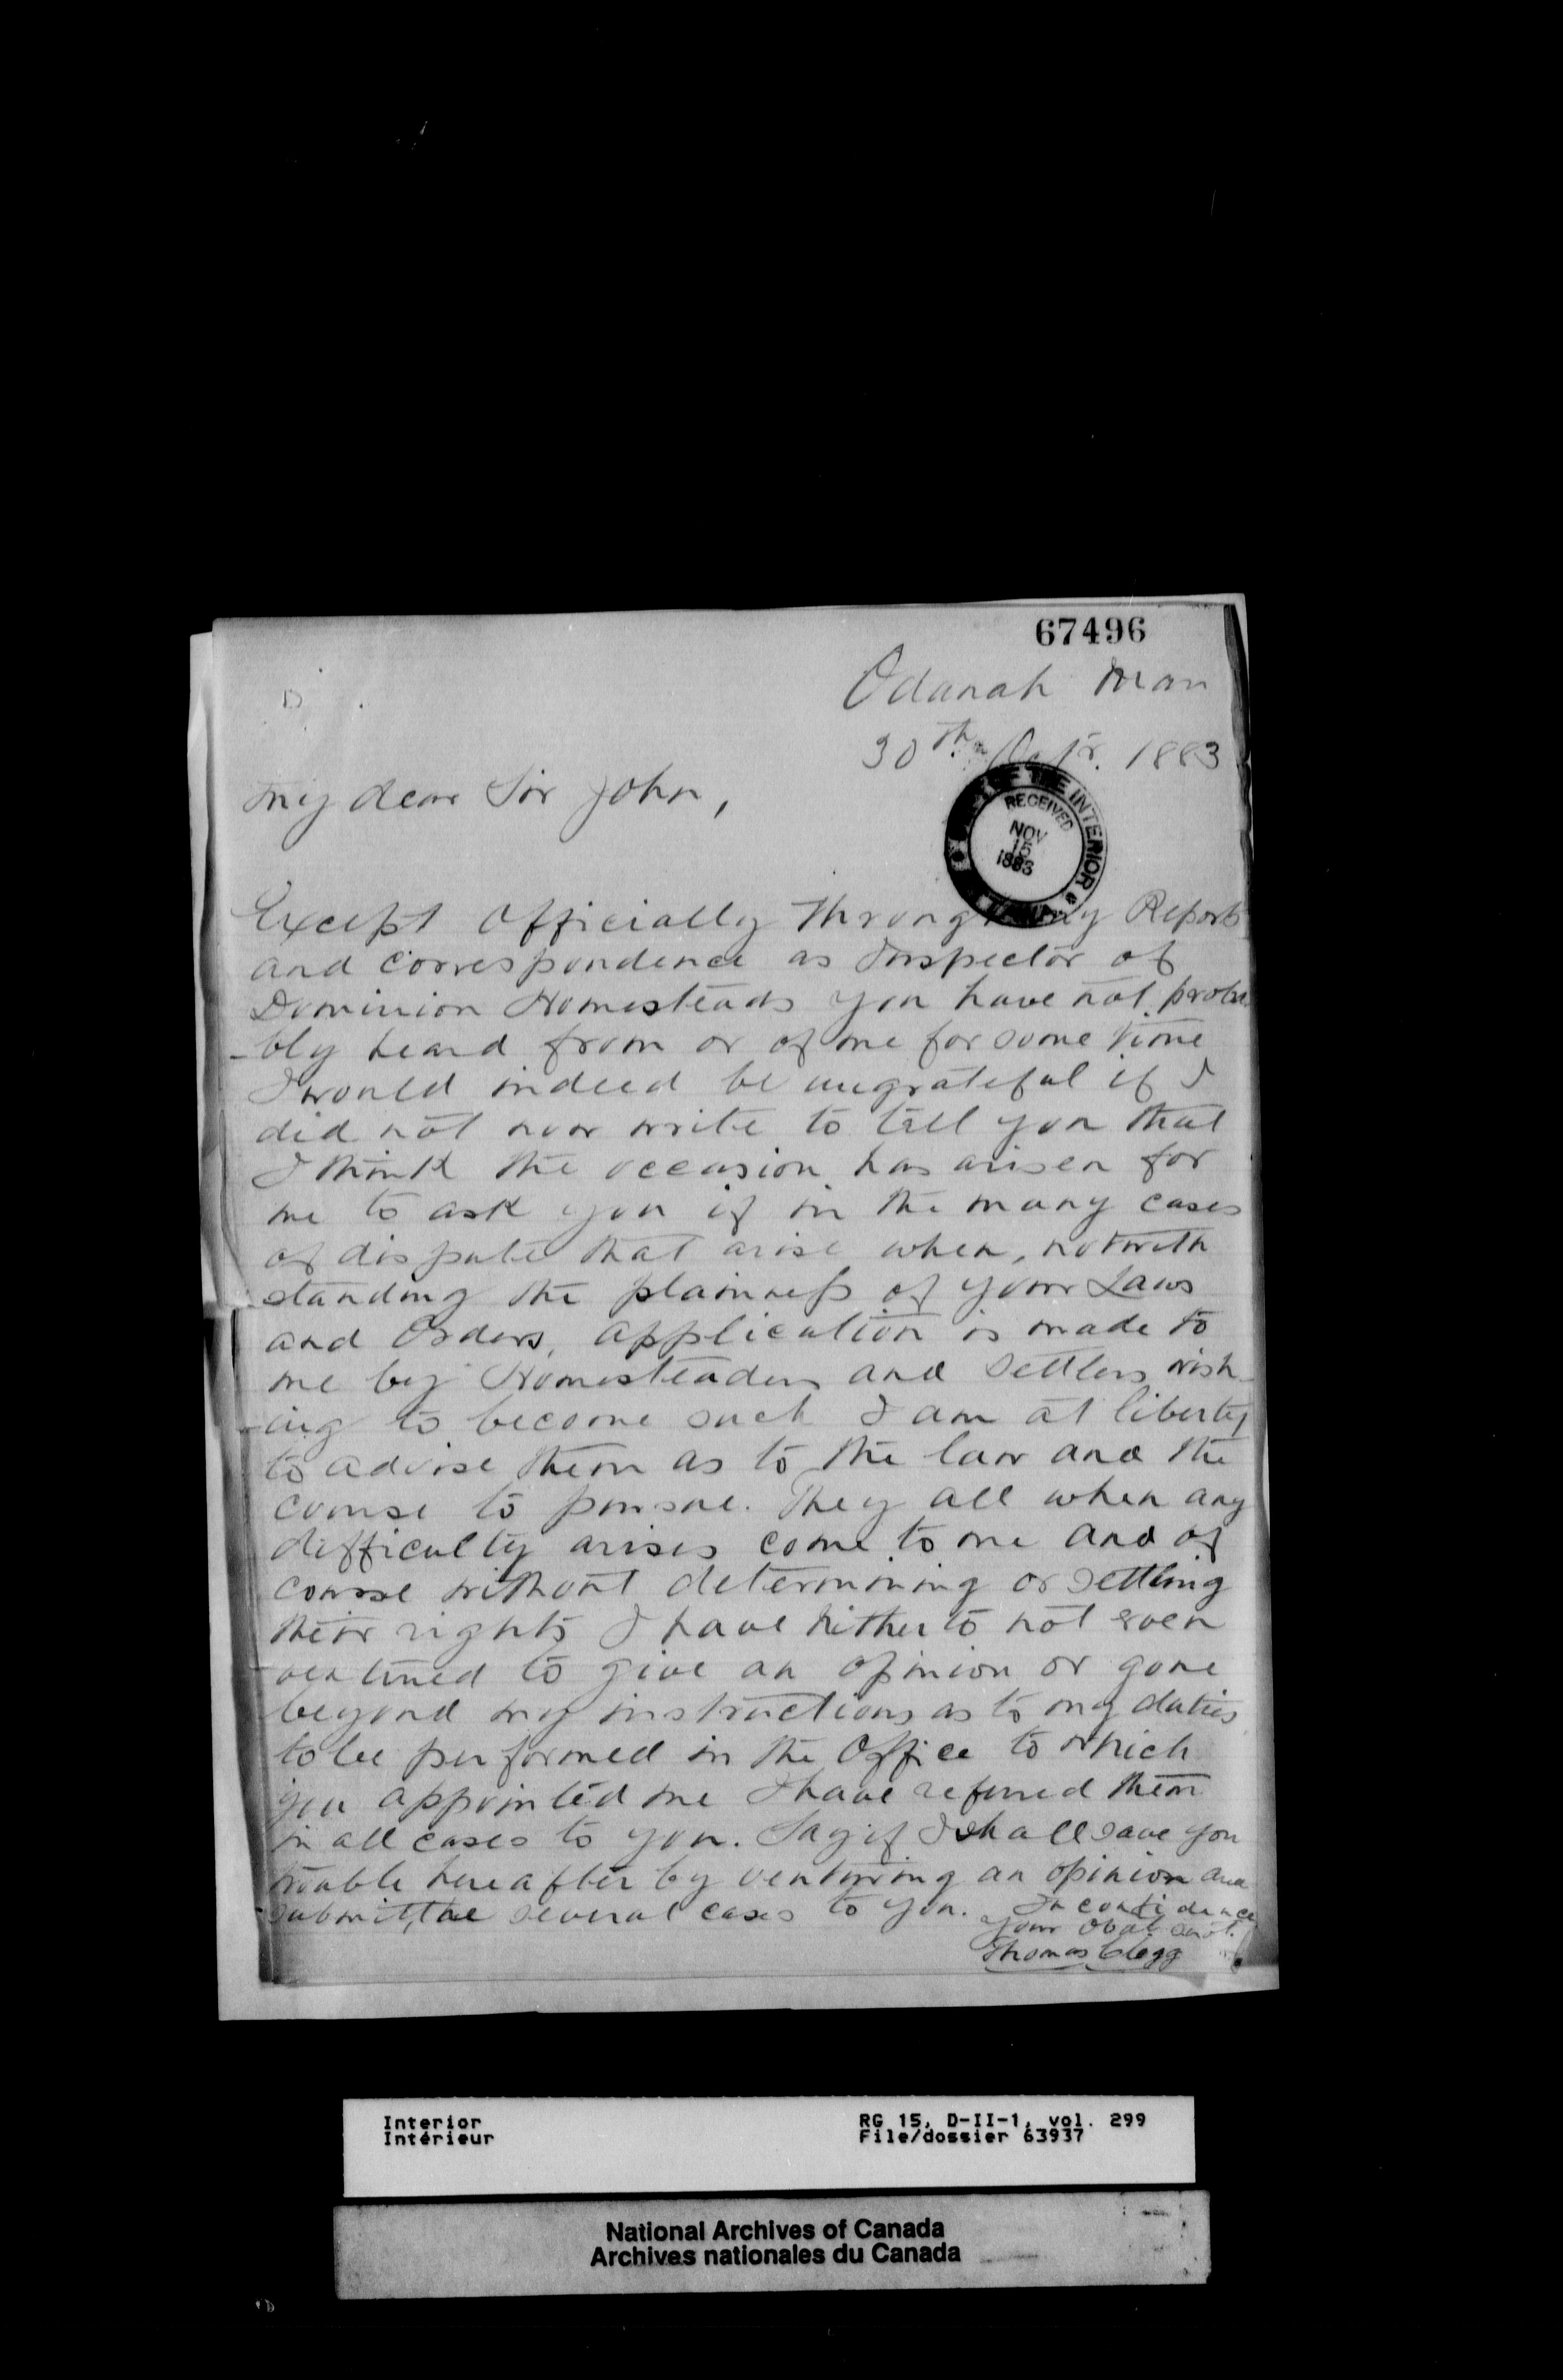 67496
Odanah Man
30th Octr. 1883
My dear Sir John,
OF THE INTERIOR
RECEIVED
NOV
15
1883
Except Officially through my Reports
and correspondence as Inspector of
Dominion Homesteads you have not proba
-bly heard from or of me for some time
I would indeed be ungrateful if I
did not now write to tell you that
I think the occasion has arisen for
me to ask you if in the many cases
of dispute that arise when, notwith
standing the plainness of your Laws
and Orders, application is made to
me by Homesteaders and Settlers wish-
-ing to become such I am at liberty
to advise them as to the law and the
course to pursue. They all when any
difficulty arises come to me and of
course without determining or settling
their rights I have hitherto not even
ventured to give an opinion or gone
beyond my instructions as to my duties
to be performed in the Office to which
you appointed me I have referred them
in all cases to you. Say if I shall save you
trouble hereafter by venturing an opinion and
submit the several cases to you. In confidence
your obdt servt.
Thomas Clegg
Interior
Intérieur
RG 15, D-II-1, vol. 299
File/dossier 63937
National Archives of Canada
Archives nationales du Canada